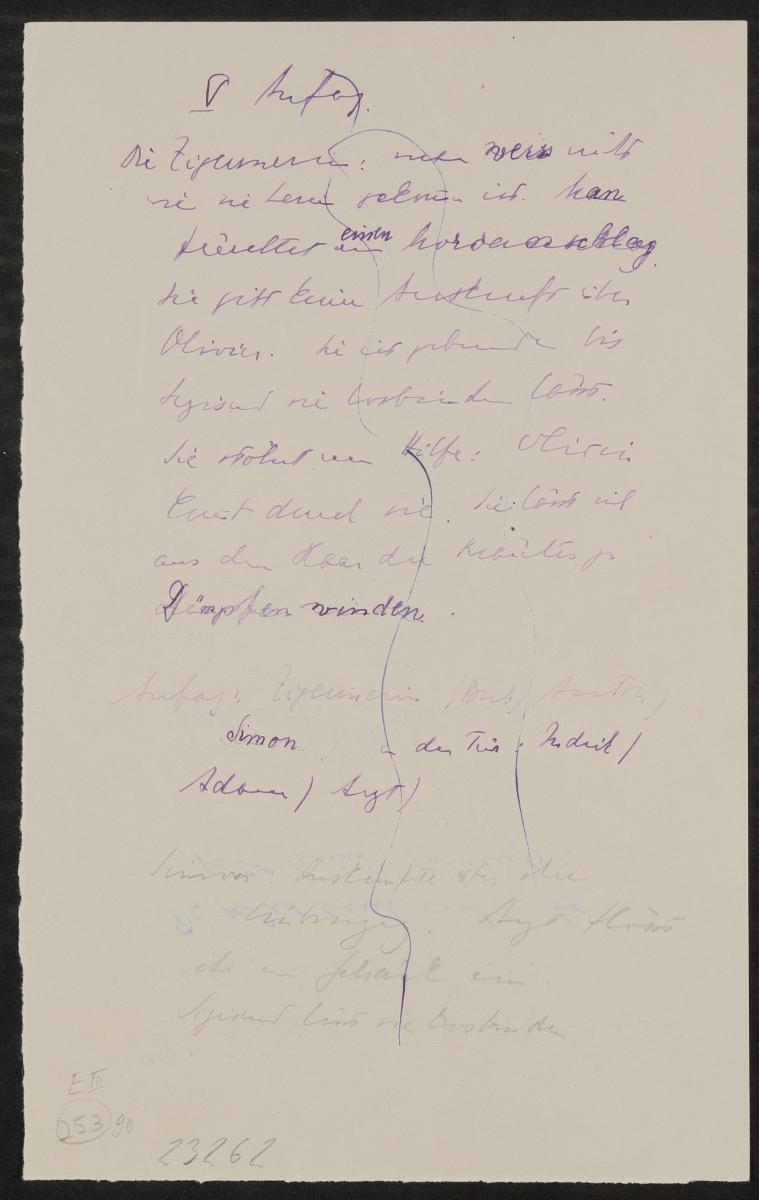 V Anfang.
Die Zigeunerin: man weiss nicht
wie sie herein gekommen ist. Man
fürchtet einen Mordanschlag.
Sie gibt keine Auskunft über
Olivier. Sie ist gebunden bis
Sigismund sie losbinden lässt.
Sie stöhnt um Hilfe: Olivier
kommt durch sie. Sie lässt sich
aus dem Haar die Kräuter zu
Dämpfen winden.
Anfang: Zigeunerin / Anton /
Simon / an der Tür: Indrik /
Adam / Arzt /
Simon: Auskünfte über die
Arzt flösst
ihr ein Getränk ein.
Sigismund lässt sie losbinden
E III
253 90
23262